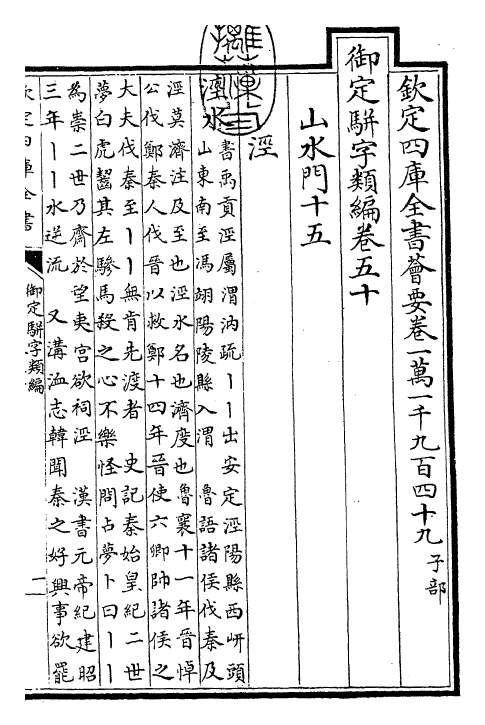 欽定四庫全書薈要卷一萬一千九百四十九 子部
御定駢字類編卷五十
山水門十五
涇
涇水 書禹貢涇屬渭汭疏丨丨出安定涇陽縣西岍頭
山東南至馮翊陽陵縣入渭 魯語諸侯伐秦及
涇莫濟注及至也涇水名也濟度也魯襄十一年晉悼
公伐鄭秦人伐晉以救鄭十四年晉使六卿帥諸侯之
大夫伐秦至丨丨無肯先渡者 史記秦始皇紀二世
夢白虎齧其左驂馬殺之心不樂怪問占夢卜曰丨丨
為祟二世乃齋於望夷宮欲祠涇 漢書元帝紀建昭
三年丨丨水逆流 又溝洫志韓聞秦之好興事欲罷
欽定四庫全書
御定駢字類編
一